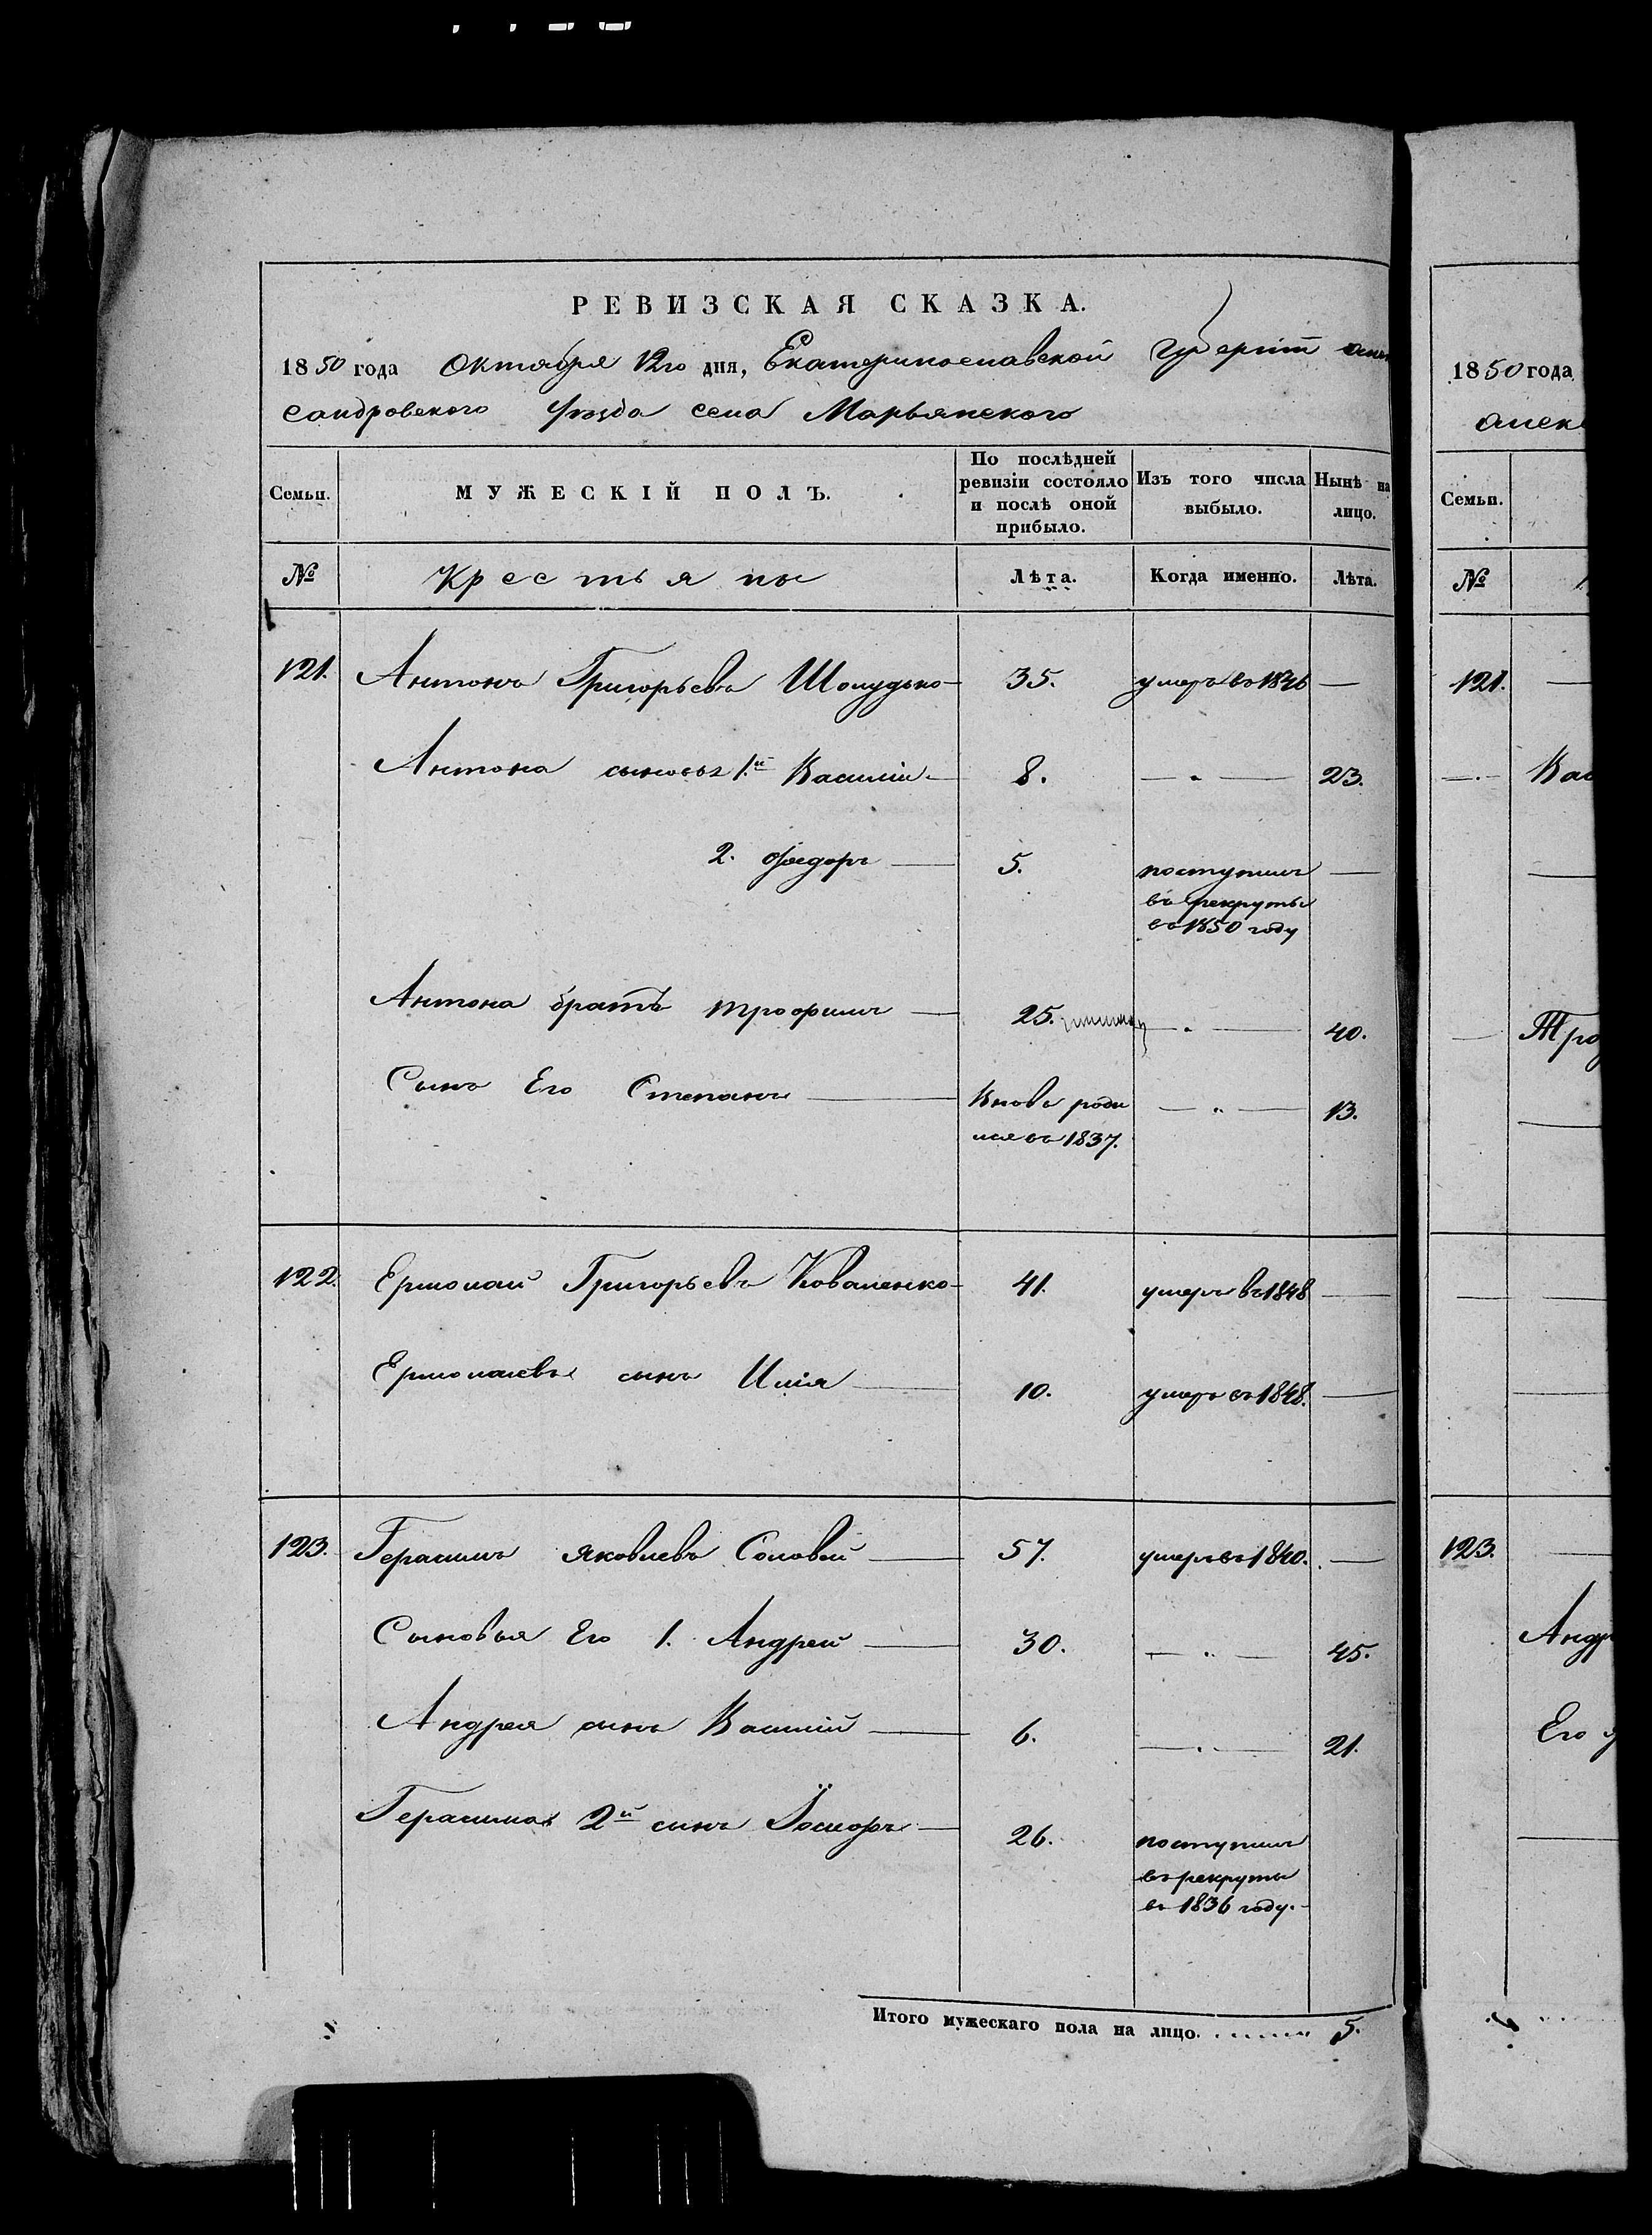 РЕВИЗСКАЯ СКАЗКА.
1850 года Октября 12го дня, Екатеринославской Губерніи Алек
сандровского Уѣзда села Марьянского
Семьи.
МУЖЕСКІЙ ПОЛЪ.
По послѣдней ревизіи состояло и послѣ оной прибыло.
Изъ того числа выбыло.
Нынѣ на лицо.
№ Крестьяны Лѣта. Когда именно. Лѣта.
121. Антонъ Григорьевъ Шолудько 35. умеръ въ 1846 —
Антона сыновья 1й Василій 8. — „ — 23.
2. Федоръ 5. поступилъ —
въ рекруты
въ 1850 году
Антона братъ Трофимъ 25. — „ — 40.
Сынъ Его Степанъ Вновь роди — „ — 13.
лся въ 1837.
122. Ермолай Григорьевъ Коваленко 41. умеръ въ 1848 —
Ермолаевъ сынъ Илія 10. умеръ въ 1848. —
123. Герасимъ Яковлевъ Соловей 57. умеръ въ 1840. —
Сыновья Его 1. Андрей 30. — „ — 45.
Андрея сынъ Василій 6. — „ — 21.
Герасима 2й сынъ 26. поступилъ
въ рекруты
въ 1836 году.
Итого мужескаго пола на лицо. 5.
1850 года
алек
Семьи.
№
121.
Вас
Троф
123.
Андр
Его